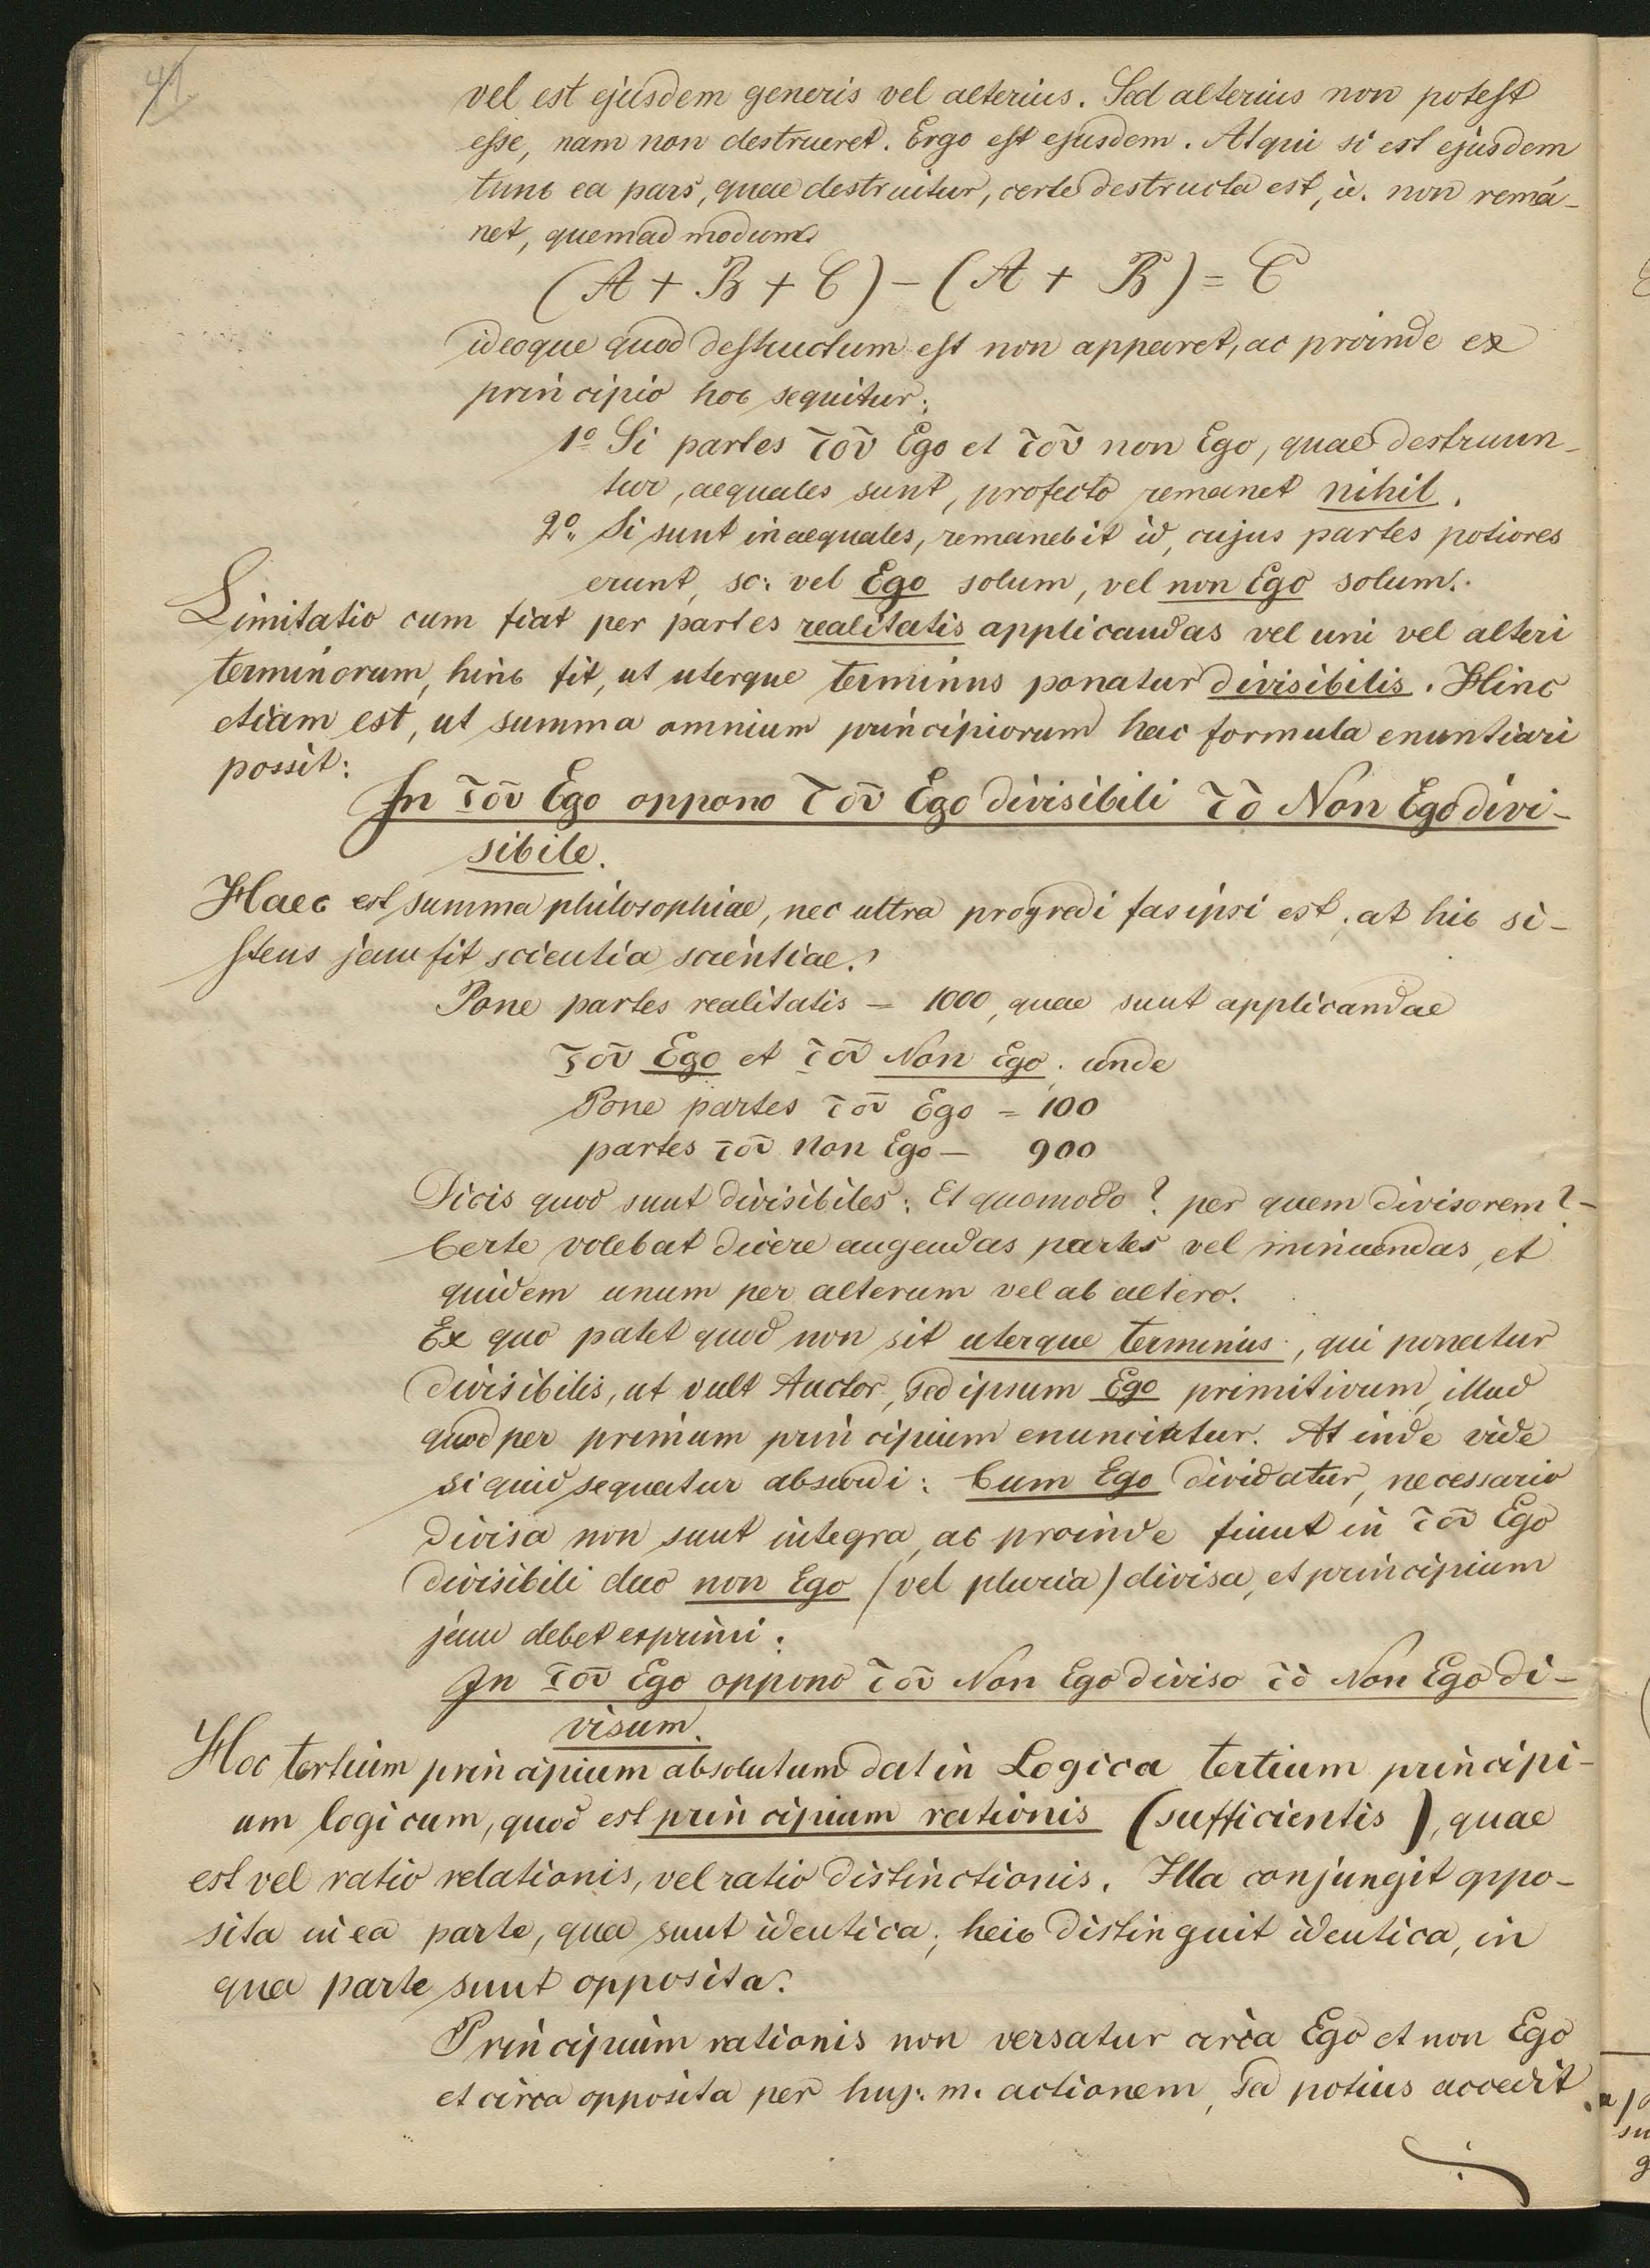 41.
vel est ejusdem generis vel alterius. Sed alterius non potest
esse, nam non destrueret. Ergo est ejusdem. Atqui si est ejusdem
tunc ea pars, quae destruitur, certe destructa est, i.e. non rema-
net, quemadmodum
(A + B + C) - (A + B) = C
ideoque quod destructum est non apparet, ac proinde ex
principio hoc sequitur:
1º Si partes τοῦ Ego et τοῦ non Ego, quae destruun-
tur, aequales sunt, profecto remanet nihil.
2º. Si sunt inaequales, remanebit id, cujus partes potiores
erunt, sc: vel Ego solum, vel non Ego solum.
Limitatio cum fiat per partes realitatis applicandas vel uni vel alteri
terminorum, hinc fit, ut uterque terminus ponatur divisibilis. Hinc
etiam est, ut summa omnium principiorum hac formula enuntiari
possit:
In τοῦ Ego oppono τοῦ Ego divisibili τὸ Non Ego divi-
sibile.
Haec est summa philosophiae, nec ultra progredi fas ipsi est; at hic si-
stens jam fit scientia scientiae.
Pone partes realitatis = 1000, quae sunt applicandae
τοῦ Ego et τοῦ Non Ego; unde
Pone partes τοῦ Ego = 100
partes τοῦ Non Ego = 900
Dicis quod sunt divisibiles: Et quomodo? per quem divisorem? -
Certe volebat dicere augendas partes vel minuendas, et
quidem unum per alterum vel ab altero.
Ex quo patet quod non sit uterque terminus, qui ponatur
divisibilis, ut vult Auctor, sed ipsum Ego primitivum, illud
quod per primum principium enunciatur. At inde vide
si quid sequatur absurdi: Cum Ego dividatur, necessario
divisa non sunt integra, ac proinde fiunt in τοῦ Ego
divisibili duo non Ego (vel pluria) divisa, et principium
jam debet exprimi:
In τοῦ Ego oppono τοῦ Non Ego diviso τὸ Non Ego di-
visum.
Hoc tertium principium absolutum dat in Logica tertium principi-
um logicum, quod est principium rationis (sufficientis), quae
est vel ratio relationis, vel ratio distinctionis. Illa conjungit oppo-
sita in ea parte, qua sunt identica; haec distinguit identica, in
qua parte sunt opposita.
Principium rationis non versatur circa Ego et non Ego
et circa opposita per huj. m. actionem, sed potius accedit